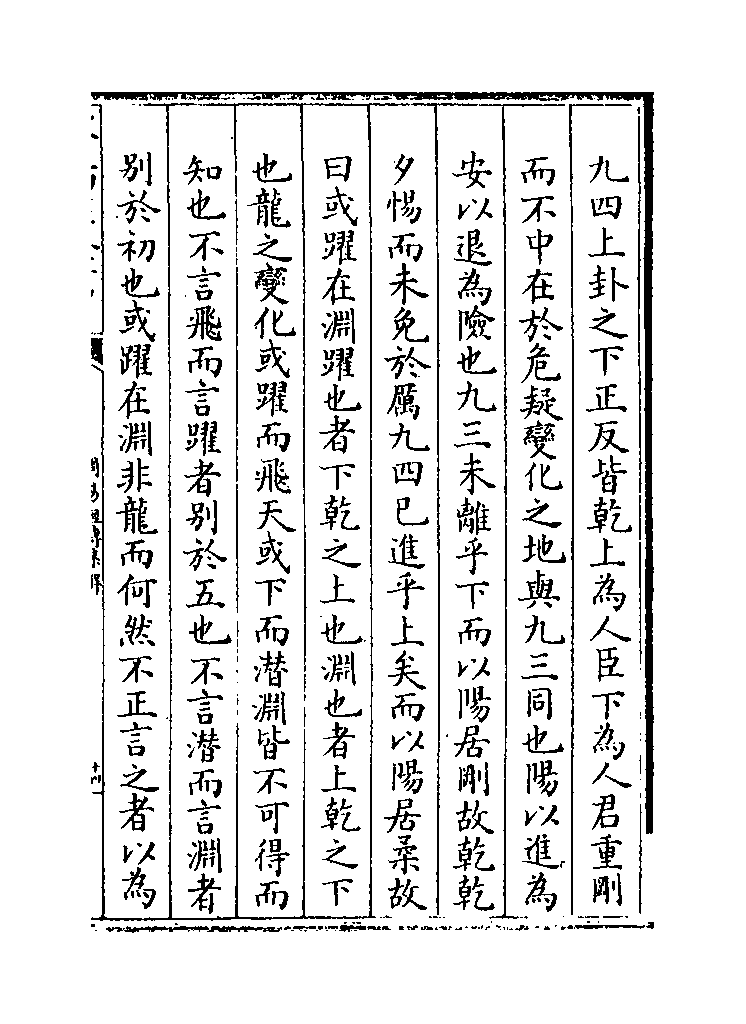 九四上卦之下正反皆乾上為人臣下為人君重剛
而不中在於危疑變化之地與九三同也陽以進為
安以退為險也九三未離乎下而以陽居剛故乾乾
夕惕而未免於厲九四已進乎上矣而以陽居柔故
曰或躍在淵躍也者下乾之上也淵也者上乾之下
也龍之變化或躍而飛天或下而潜淵皆不可得而
知也不言飛而言躍者别於五也不言潜而言淵者
别於初也或躍在淵非龍而何然不正言之者以為
周易經傳集解